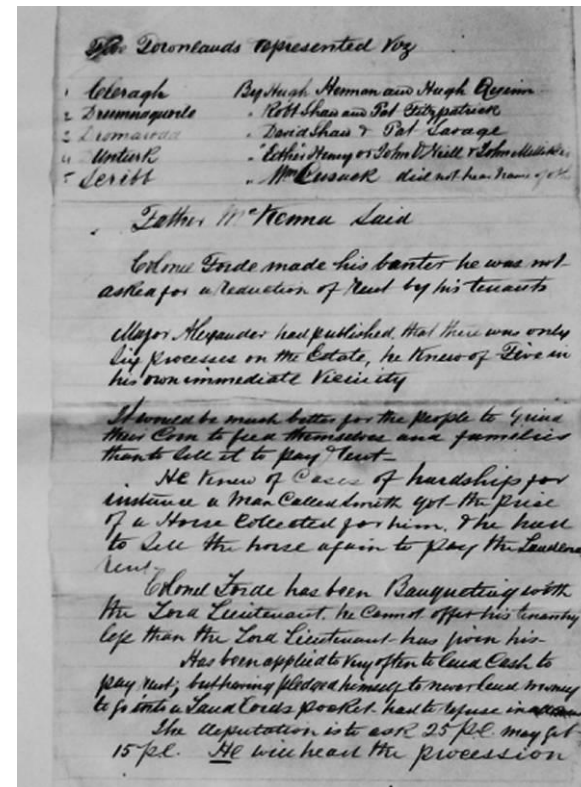 The Townlands represented Viz
1 Coleragh By Hugh Heenan and Hugh Quinn
2 Drumnaquoile " Robt Shaw and Pat Fitzpatrick
3 Dromaroda " David Shaw & Pat Savage
4 Unturk " Edther Henry or John O'Neill & John
5 Scribb " Wm Cusack did not hear name of
Father McKenna Said
Colonel Forde made his banter he was not
asked for a reduction of Rent by his tenants
Major Alexander had published that there was only
Six processes on the Estate, he Knew of Five in
his own immediate Vicinity
It would be much better for the people to Grind
their Corn to feed themselves and families
than to Sell it to pay Rent
He Knew of Cases of hardship for
instance a Man Called Smith got the price
of a Horse Collected for him, & he had
to Sell the horse again to pay the
rent.
Colonel Forde has been Banqueting with
the Lord Lieutenant, he Cannot offer his tenantry
less than the Lord Lieutenant has given his
Has been applied to Very often to lend Cash to
pay rent; but having pledged himself to never lend money
to go into a Land Lords pocket had to refuse in
The deputation is to ask 25 p.c. may get
15 p.c. He will head the procession